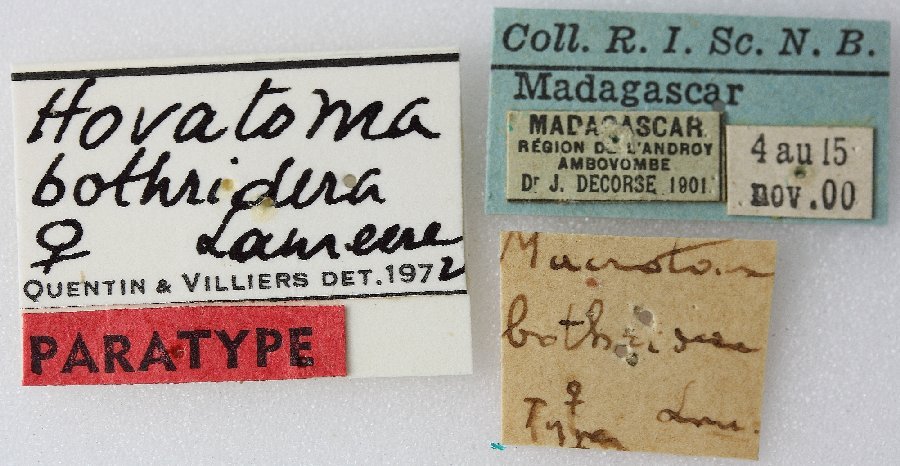 Hovatoma
bothridera
♀ Lameere
QUENTIN & VILLIERS DET. 1972
PARATYPE
Coll. R. I. Sc. N. B.
Madagascar
MADAGASCAR
RÉGION DE L'ANDROY
AMBOVOMBE
Dr J. DECORSE 1901
4 au 15
nov. 00
bothridera
♀ Lm.